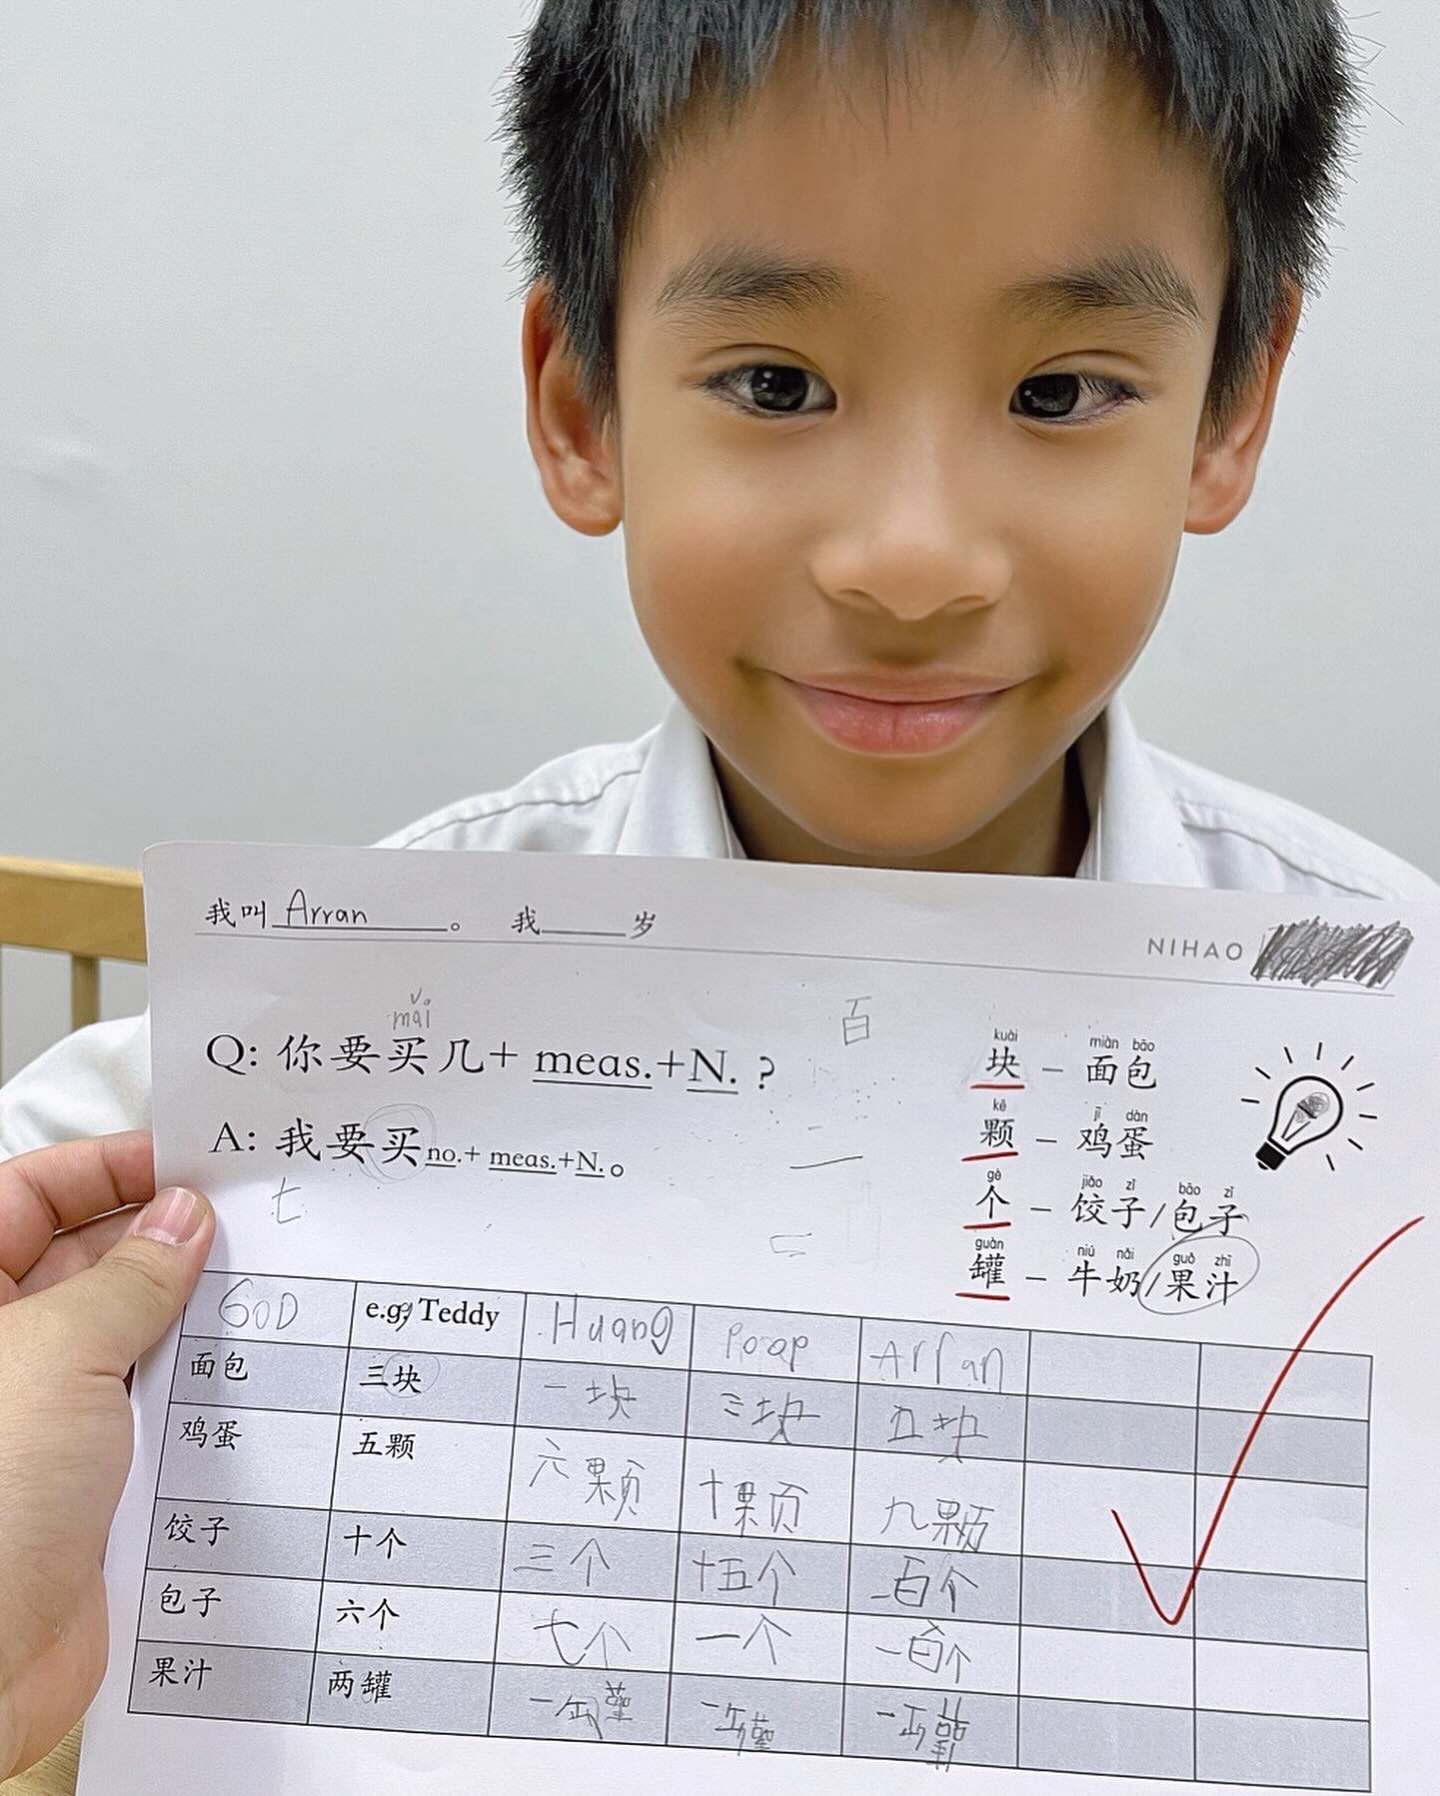 我叫 Arran 。 我 岁
NIHAO
mǎi
Q: 你要买几+ meas.+N. ?
百
A: 我要买no.+ meas.+N.。
七
kuài miàn bāo
块 – 面包
kē jī dàn
颗 – 鸡蛋
gè jiǎo zǐ bāo zǐ
个 – 饺子/包子
guàn niú nǎi guǒ zhī
罐 – 牛奶/果汁
GOD e.g, Teddy Huang Poop Arran
面包 三块 一块 三块 五块
鸡蛋 五颗 六颗 十颗 九颗
饺子 十个 三个 十五个 一百个
包子 六个 七个 一个 一百个
果汁 两罐 一罐 一罐 一罐